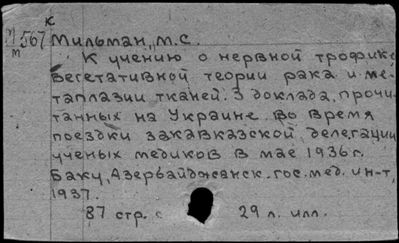 К
М/м 567 Мильман, М.С.
К учению о нервной трофике
вегетативной теории рака и ме-
таплазии тканей. 3 доклада, прочи-
танных на Украине. Во время
поездки закавказской делегации
ученых медиков в мае 1936 г.
Баку, Азербайджанск. гос. мед. ин-т,
1937.
87 стр. с 29 л. илл.